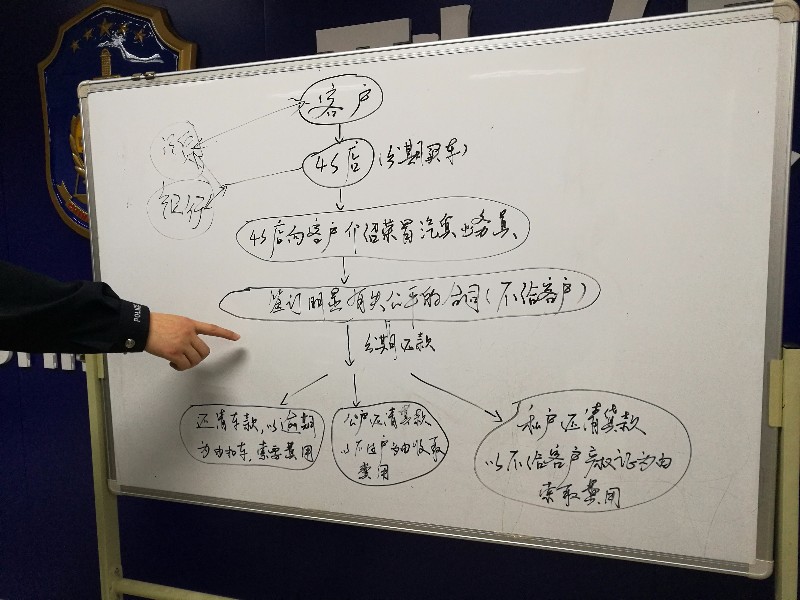 客户
4S店 (分期买车)
银行
4S店向客户介绍荣首汽贸业务员
签订明显有失公平的合同(不给客户)
分期还款
还清车款,以逾期
为由扣车,索要费用
公户还清贷款
以不过户为由收取
费用
私户还清贷款
以不给客户产权证为由
索取费用
POLICE